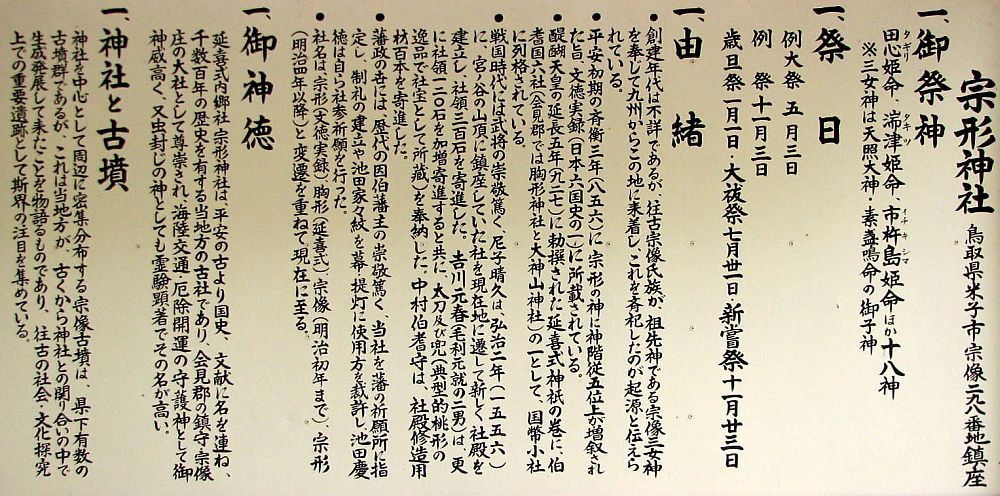 宗形神社 鳥取県米子市宗像二九八番地鎮座
一、御祭神
田心姫命、湍津姫命、市杵島姫命ほか十八神
タギリ タキツ イチキシマ
※三女神は天照大神・素盞鳴命の御子神
一、祭日
例大祭 五月三日
例祭 十一月三日
歳旦祭 一月一日・大祓祭 七月卅一日 新嘗祭 十一月廿三日
一、由緒
● 創建年代は不詳であるが、往古宗像氏族が、祖先神である宗像三女神
を奉じて九州からこの地に来着し、これを斉祀したのが起源と伝えら
れている。
● 平安初期の斉衡三年(八五六)に宗形の神に神階従五位上が増叙され
た旨、文徳実録(日本六国史の一)に所載されている。
● 醍醐天皇の延長五年(九二七)に勅撰された延喜式神祇の巻に、伯
耆国六社(会見郡では胸形神社と大神山神社)の一として、国幣小社
に列格されている。
● 戦国時代には武将の崇敬篤く、尼子晴久は、弘治二年(一五五六)
に、宮ヶ谷の山頂に鎮座していた社を現在地に遷して新しく社殿を
建立し、社領三百石を寄進した。吉川元春(毛利元就の二男)は、更
に社領一二〇石を加増寄進すると共に、太刀及び兜(典型的桃形の
逸品で社宝として所蔵)を奉納した。中村伯耆守は、社殿修造用
材百本を寄進した。
● 藩政の世には、歴代の因伯藩主の崇敬篤く、当社を藩の祈願所に指
定し、制札の建立や池田家々紋を幕・提灯に使用方を裁許し、池田慶
徳は自ら社参祈願を行った。
● 社名は、宗形(文徳実録)、胸形(延喜式)、宗像(明治初年まで)、宗形
(明治四年以降)と変遷を重ねて現在に至る。
一、御神徳
延喜式内郷社宗形神社は、平安の古より国史、文献に名を連ね、
千数百年の歴史を有する当地方の古社であり、会見郡の鎮守・宗像
庄の大社として尊崇され、海陸交通・厄除開運の守護神として御
神威高く、又虫封じの神としても霊験顕著でその名が高い。
一、神社と古墳
神社を中心として周辺に密集分布する宗像古墳は、県下有数の
古墳群であるが、これは当地方が、古くから神社との関り合いの中で
生成発展して来たことを物語るものであり、往古の社会・文化探究
上での重要遺跡として斯界の注目を集めている。